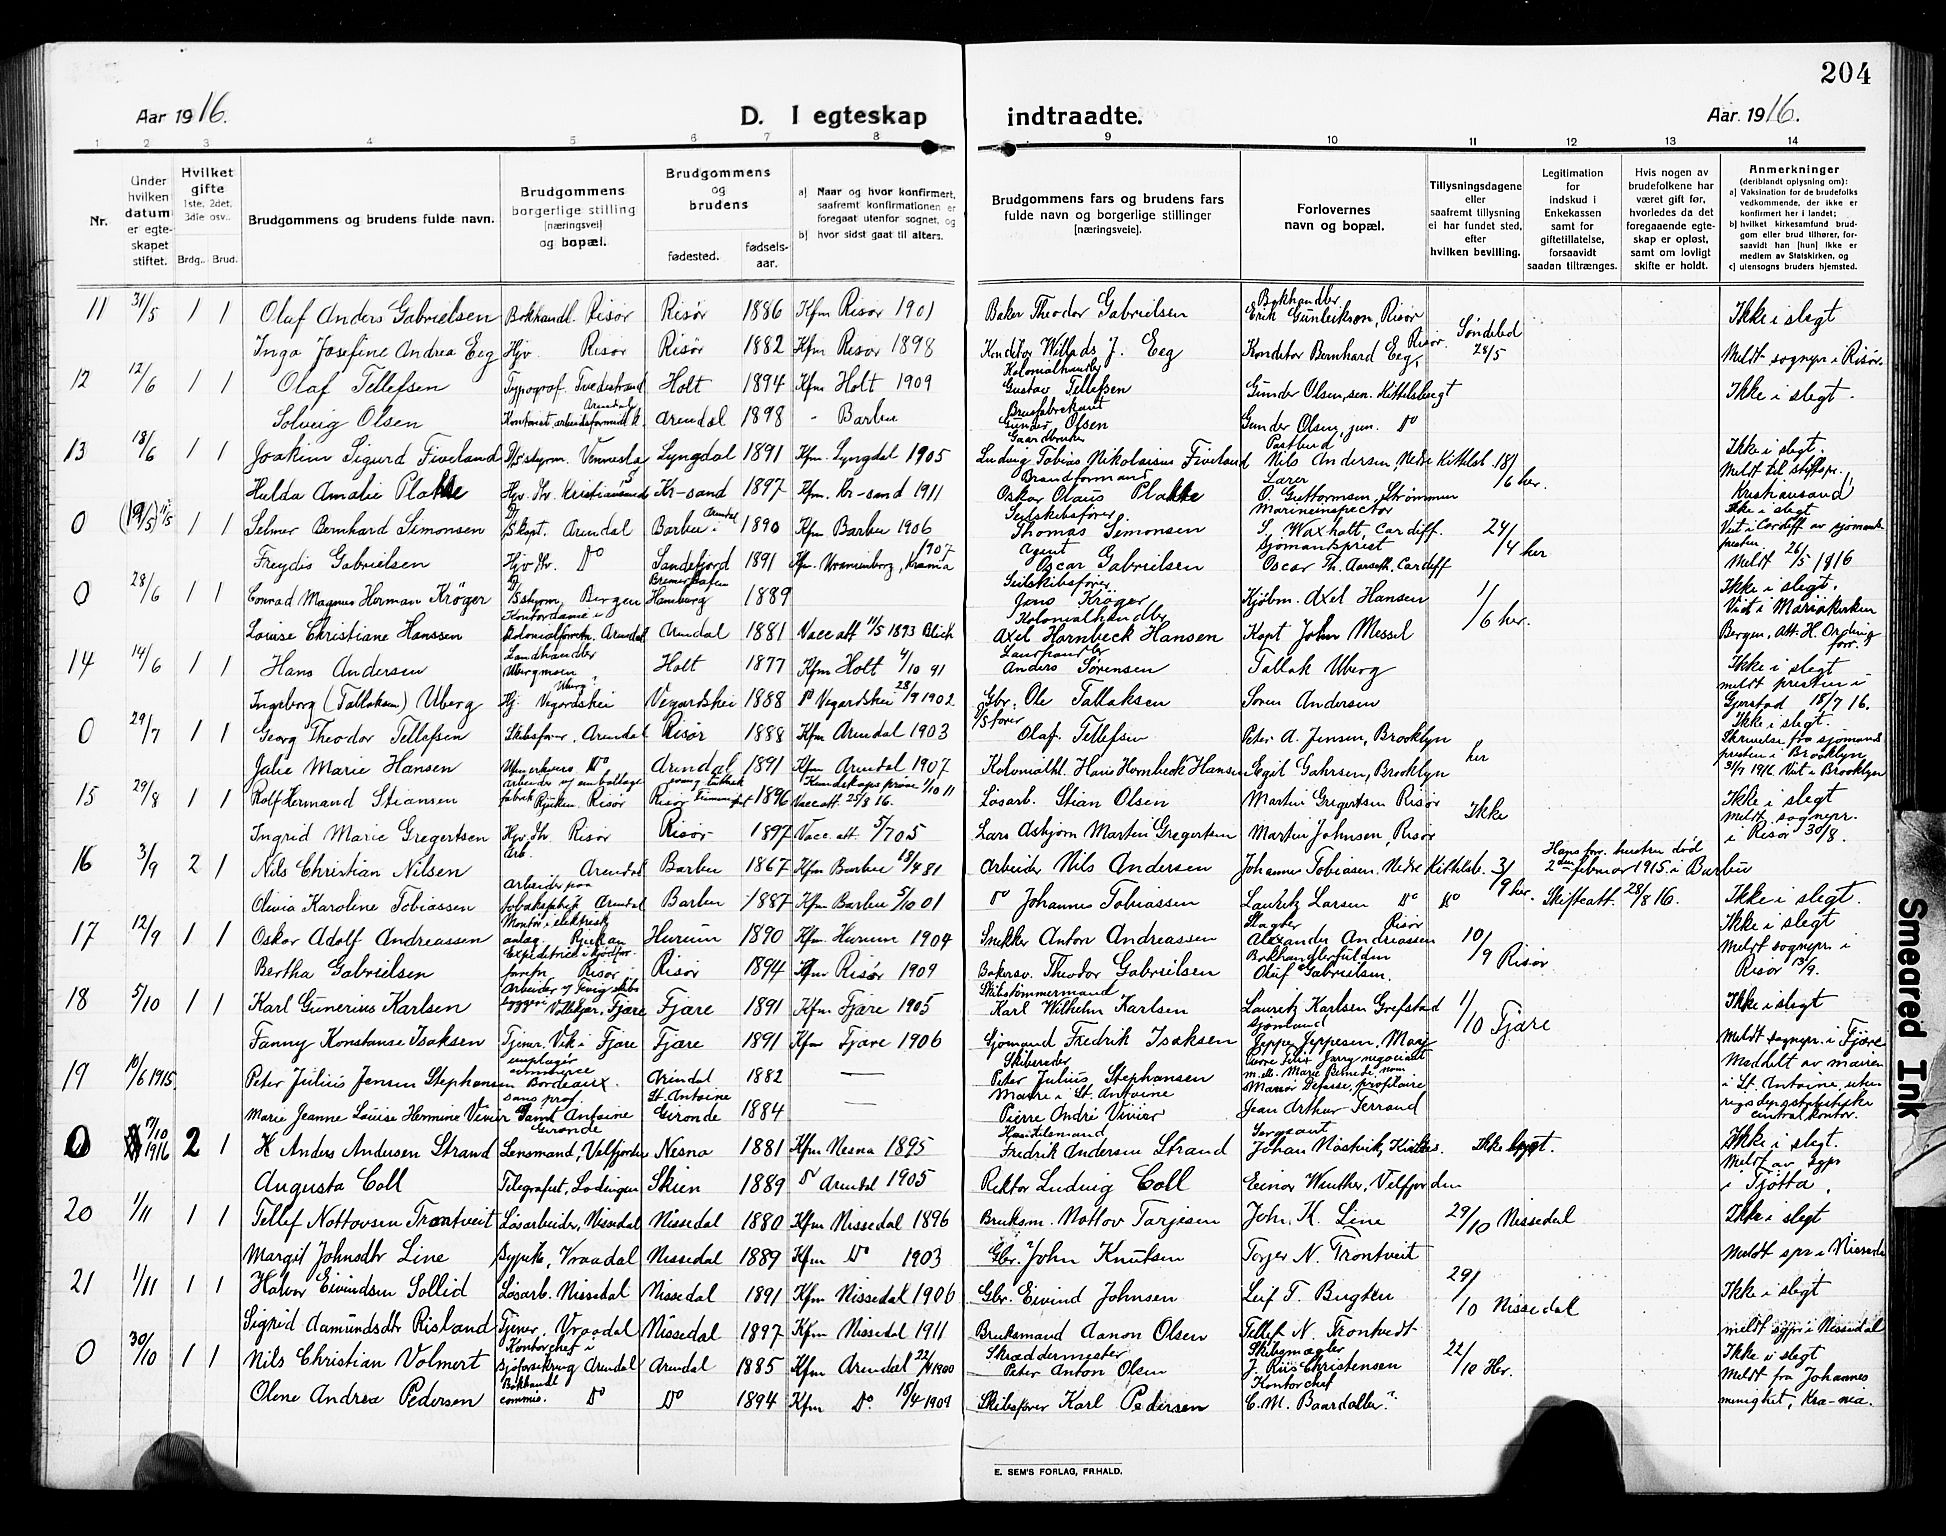 204
Aar 1916.
D. I egteskap indtraadte.
Aar. 1916.
1 2 3 4 5 6 7 8 9 10 11 12 13 14
Nr.
Under hvilken datum er egteskapet stiftet.
Hvilket gifte 1ste, 2det, 3die osv..
Brdg.. Brud.
Brudgommens og brudens fulde navn.
Brudgommens borgerlige stilling [næringsvei] og bopæl.
Brudgommens og brudens
fødested.
fødsels-aar.
a) Naar og hvor konfirmert, saafremt konfirmationen er foregaat utenfor sognet, og
b) hvor sidst gaat til alters.
Brudgommens fars og brudens fars fulde navn og borgerlige stillinger [næringsveie].
Forlovernes navn og bopæl.
Tillysningsdagene eller saafremt tillysning ei har fundet sted, efter hvilken bevilling.
Legitimation for indskud i Enkekassen samt for giftetillatelse, forsaavidt saadan tiltrænges.
Hvis nogen av brudefolkene har været gift før, hvorledes da det foregaaende egteskap er opløst, samt om lovligt skifte er holdt.
Anmerkninger (deriblandt oplysning om): a) Vaksination for de brudefolks vedkommende, der ikke er konfirmert her i landet; b) hvilket kirkesamfund brudgom eller brud tilhører, forsaavidt han [hun] ikke er medlem av Statskirken, og c) utensogns bruders hjemsted.
11 31/5 1 1 Olaf Anders Gabrielsen Bokhandl. Risør Risør 1886 Kfm Risør 1901 Baker Theodor Gabrielsen Bokhandler Erik Gunleikson, Risør Søndeled 28/5 Ikke i slegt
Inga Josefine Andrea Eeg Hjv. Risør Risør 1882 Kfm Risør 1898 Konditor Willads J. Eeg Konditor Bernhard Eeg, Risør Meldt sognepr i Risør
12 12/6 1 1 Olaf Tellefsen Typograf. Tvedestrand Holt 1894 Kfm Holt 1909 Kolonialhandler Gustav Tellefsen Gunder Olsen, sen. Kittelsbugt Ikke i slegt.
Solveig Olsen Kontorist, Arendal Arendal 1898 - Barbu Brusfabrekant Gunder Olsen Gunder Olsen, jun. Do
13 18/6 1 1 Joakim Sigurd Fiveland D/S styrm. Vennesla Lyngdal 1891 Kfm. Lyngdal 1905 Gaardbruker Ludvig Tobias Nikolaisius Fiveland Postbud Nils Andersen, Nedre Kittelsb. 18/6 her. Ikke i slegt.
Hulda Amalie Plakke Hjv. Hr. Kristiansand Kr-sand 1897 Kfm. Kr-sand 1911 Brandformand Oskar Olaus Plakke Lærer O. Guttormsen, Strømmen Meldt til stiftspr., Kristiansand
0 (19/5) 1 1 Selmer Bernhard Simonsen D/S kapt. Arendal Barbu Arendal 1890 Kfm Barbu 1906 Seilskibsfører Thomas Simonsen Marineinspector S. Waxholt, Cardiff. 24/4 her Ikke i slegt Viet i Cardiff av sjømandspresten
Freydis Gabrielsen Hjv. Hr. Do Sandefjord 1891 Kfm. Uranienborg, Krania 1907 Agent Oscar Gabrielsen Sjømandsprest Oscar Th. Aarseth, Cardiff Meldt 26/5 1916
0 28/6 1 1 Conrad Magnus Herman Krøger D/S styrm Bergen Bremerhafen Hamburg 1889 Seilskibsfører Jens Krøger Kjøbm. Axel Hansen 1/6 her. Ikke i slegt.
Louise Christiane Hanssen Kontordame i Kolonialforretn. Arendal Arendal 1881 Vacc att 11/5 1893 Blich Kolonialhandler Axel Hornbeck Hansen Kapt John Messel Viet i Mariakirken Bergen, Att: H. Ording
14 14/6 1 1 Hans Andersen Landhandler Ubergmoen Holt 1877 Kfm Holt 4/10 91 Anders Sørensen Tallak Uberg Ikke i slegt
Ingeborg (Tallaksen) Uberg Hj. Uberg Vegardshei Vegardshei 1888 Do Vegardshei 28/9 1902 Gbr. Ole Tallaksen Søren Andersen meldt presten i Gjerstad 18/7 16.
0 29/7 1 1 Georg Theodor Tellefsen Skibsfører, Arendal Risør 1888 Kfm Arendal 1903 D/S fører Olaf Tellefsen Peter A. Jensen, Brooklyn her Ikke i slegt.
Julie Marie Hansen Do Arendal 1891 Kfm Arendal 1907 Kolonialhl. Hans Hornbeck Hansen Egil Gahrsen, Brooklyn Skrivelse fra sjømandspresten i Brooklyn 31/7 1916. Viet i Brooklyn
15 29/8 1 1 Rolf Hermand Stiansen Risør Risør 1896 Kundskapsprøve 1/10 11 Vacc att. 25/8 16. Løsarb. Stian Olsen Martin Gregertsen Risør Ikke Ikke i slegt
Ingrid Marie Gregertsen Hjv. Hr. Risør Risør 1897 Vacc. att. 5/7 05 Lars Asbjørn Martin Gregertsen Martin Johnsen, Risør Meldt sognepr. i Risør 30/8.
16 3/9 2 1 Nils Christian Nilsen Arb. Arendal Barbu 1867 Kfm Barbu 18/4 81 Arbeider Nils Andersen Johannes Tobiasen. Nedre Kittelsb. 3/9 her. Hans for. hustru død 2den februar 1915 i Barbu
Olivia Karoline Tobiassen Arbeider paa tobaksfabr Arendal Barbu 1887 Kfm Barbu 5/10 01 Do Johannes Tobiassen Lauritz Larsen Do Do Skifteatt. 28/8 16. Ikke i slegt.
17 12/9 1 1 Oskar Adolf Andreassen Montør i elektrisk anlæg. Rjukan Hurum 1890 Kfm. Hurum 1904 Snekker Anton Andreassen Slagter Risør Alexander Andreassen 10/9 Risør Ikke i slegt
Bertha Gabrielsen Expeditrice i kjødforretn Risør Risør 1894 Kfm Risør 1909 Bakersv. Theodor Gabrielsen Bokhandlerfuldm. Oluf Gabrielsen. Meldt sognepr. i Risør 13/9.
18 5/10 1 1 Karl Gunerius Karlsen Arbeider v/ Fevig skibsbyggeri Vollekjær, Fjære Fjære 1891 Kfm Fjære 1905 Skibstømmermand Karl Wilhelm Karlsen Lauritz Karlsen Grefstad 1/10 Fjære Ikke i slegt
Fanny Konstanse Isaksen Tjener, Vik i Fjære Fjære 1891 Kfm Fjære 1906 Sjømand Fredrik Isaksen Sjømand Jeppe Jeppesen, Meldt sognepr. i Fjære
19 10/6 1915 Peter Julius Jensen Stephansen employé commerce Bordeaux. Arendal 1882 — Skibsreder Peter Julius Stephansen Pierre Felix Jarry negociant Meddelt av mairen
Marie Jeanne Louise Hermine Vivier sans prof. Saint Antoine Gironde St. Antoine Gironde 1884 — Maire i St. Antoine Pierre André Vivier Jean Arthur Ferrand i St. Antoine, uten rigsdep. statistiske centralkontor.
0 7/10 1916 2 1 Anders Andersen Strand Lensmand, Velfjorden Nesna 1881 Kfm Nesna 1895 Handelsmand Fredrik Andersen Strand Sergeant Johan Ikke lyst. Ikke i slegt.
Augusta Coll Telegrafist, Lødingen Skien 1889 Do Arendal 1905 Rektor Ludvig Coll Einar Winther, Velfjorden Meldt av sgpr i Tjøtta.
20 1/11 1 1 Tellef Nottovsen Trontveit Løsarbeider, Nissedal Nissedal 1880 Kfm Nissedal 1896 Bruksm. Nottov Tarjesen John. K. Line 29/10 Nissedal Ikke i slegt
Margit Johnsdtr Line Sypike, Vraadal Nissedal 1889 Kfm Do 1903 Gbr. John Knutsen Torjer N. Trontveit Meldt spr i Nissedal
21 1/11 1 1 Halvor Eivindsen Sollid Løsarb. Nissedal Nissedal 1891 Kfm Nissedal 1906 Gbr. Eivind Johnsen Leif T. Bugten 29/10 Nissedal Ikke i slegt
Sigrid Aamundsdtr Risland Tjener, Vraadal Nissedal 1897 Kfm Nissedal 1911 Bruksmand Aanon Olsen Tellef N. Trontvedt meldt sgpr i Nissedal
0 30/10 1 1 Nils Christian Volmert Kontorchef i Sjøforsikring Arendal Arendal 1885 Kfm Arendal 22/4 1900 Skræddermester Peter Anton Olsen Skibsmægler J. Riis Christensen 22/10 Her. Ikke i slegt
Olene Andrea Pedersen Bokhandl commis. Do Do 1894 Kfm Do. 18/4 1909 Skibsfører Karl Pedersen Kontorchef C. M. Baardsller? Meldt fra Johannes menighet, Kra-nia.
E. SEM'S FORLAG, FR.HALD.
Smeared Ink